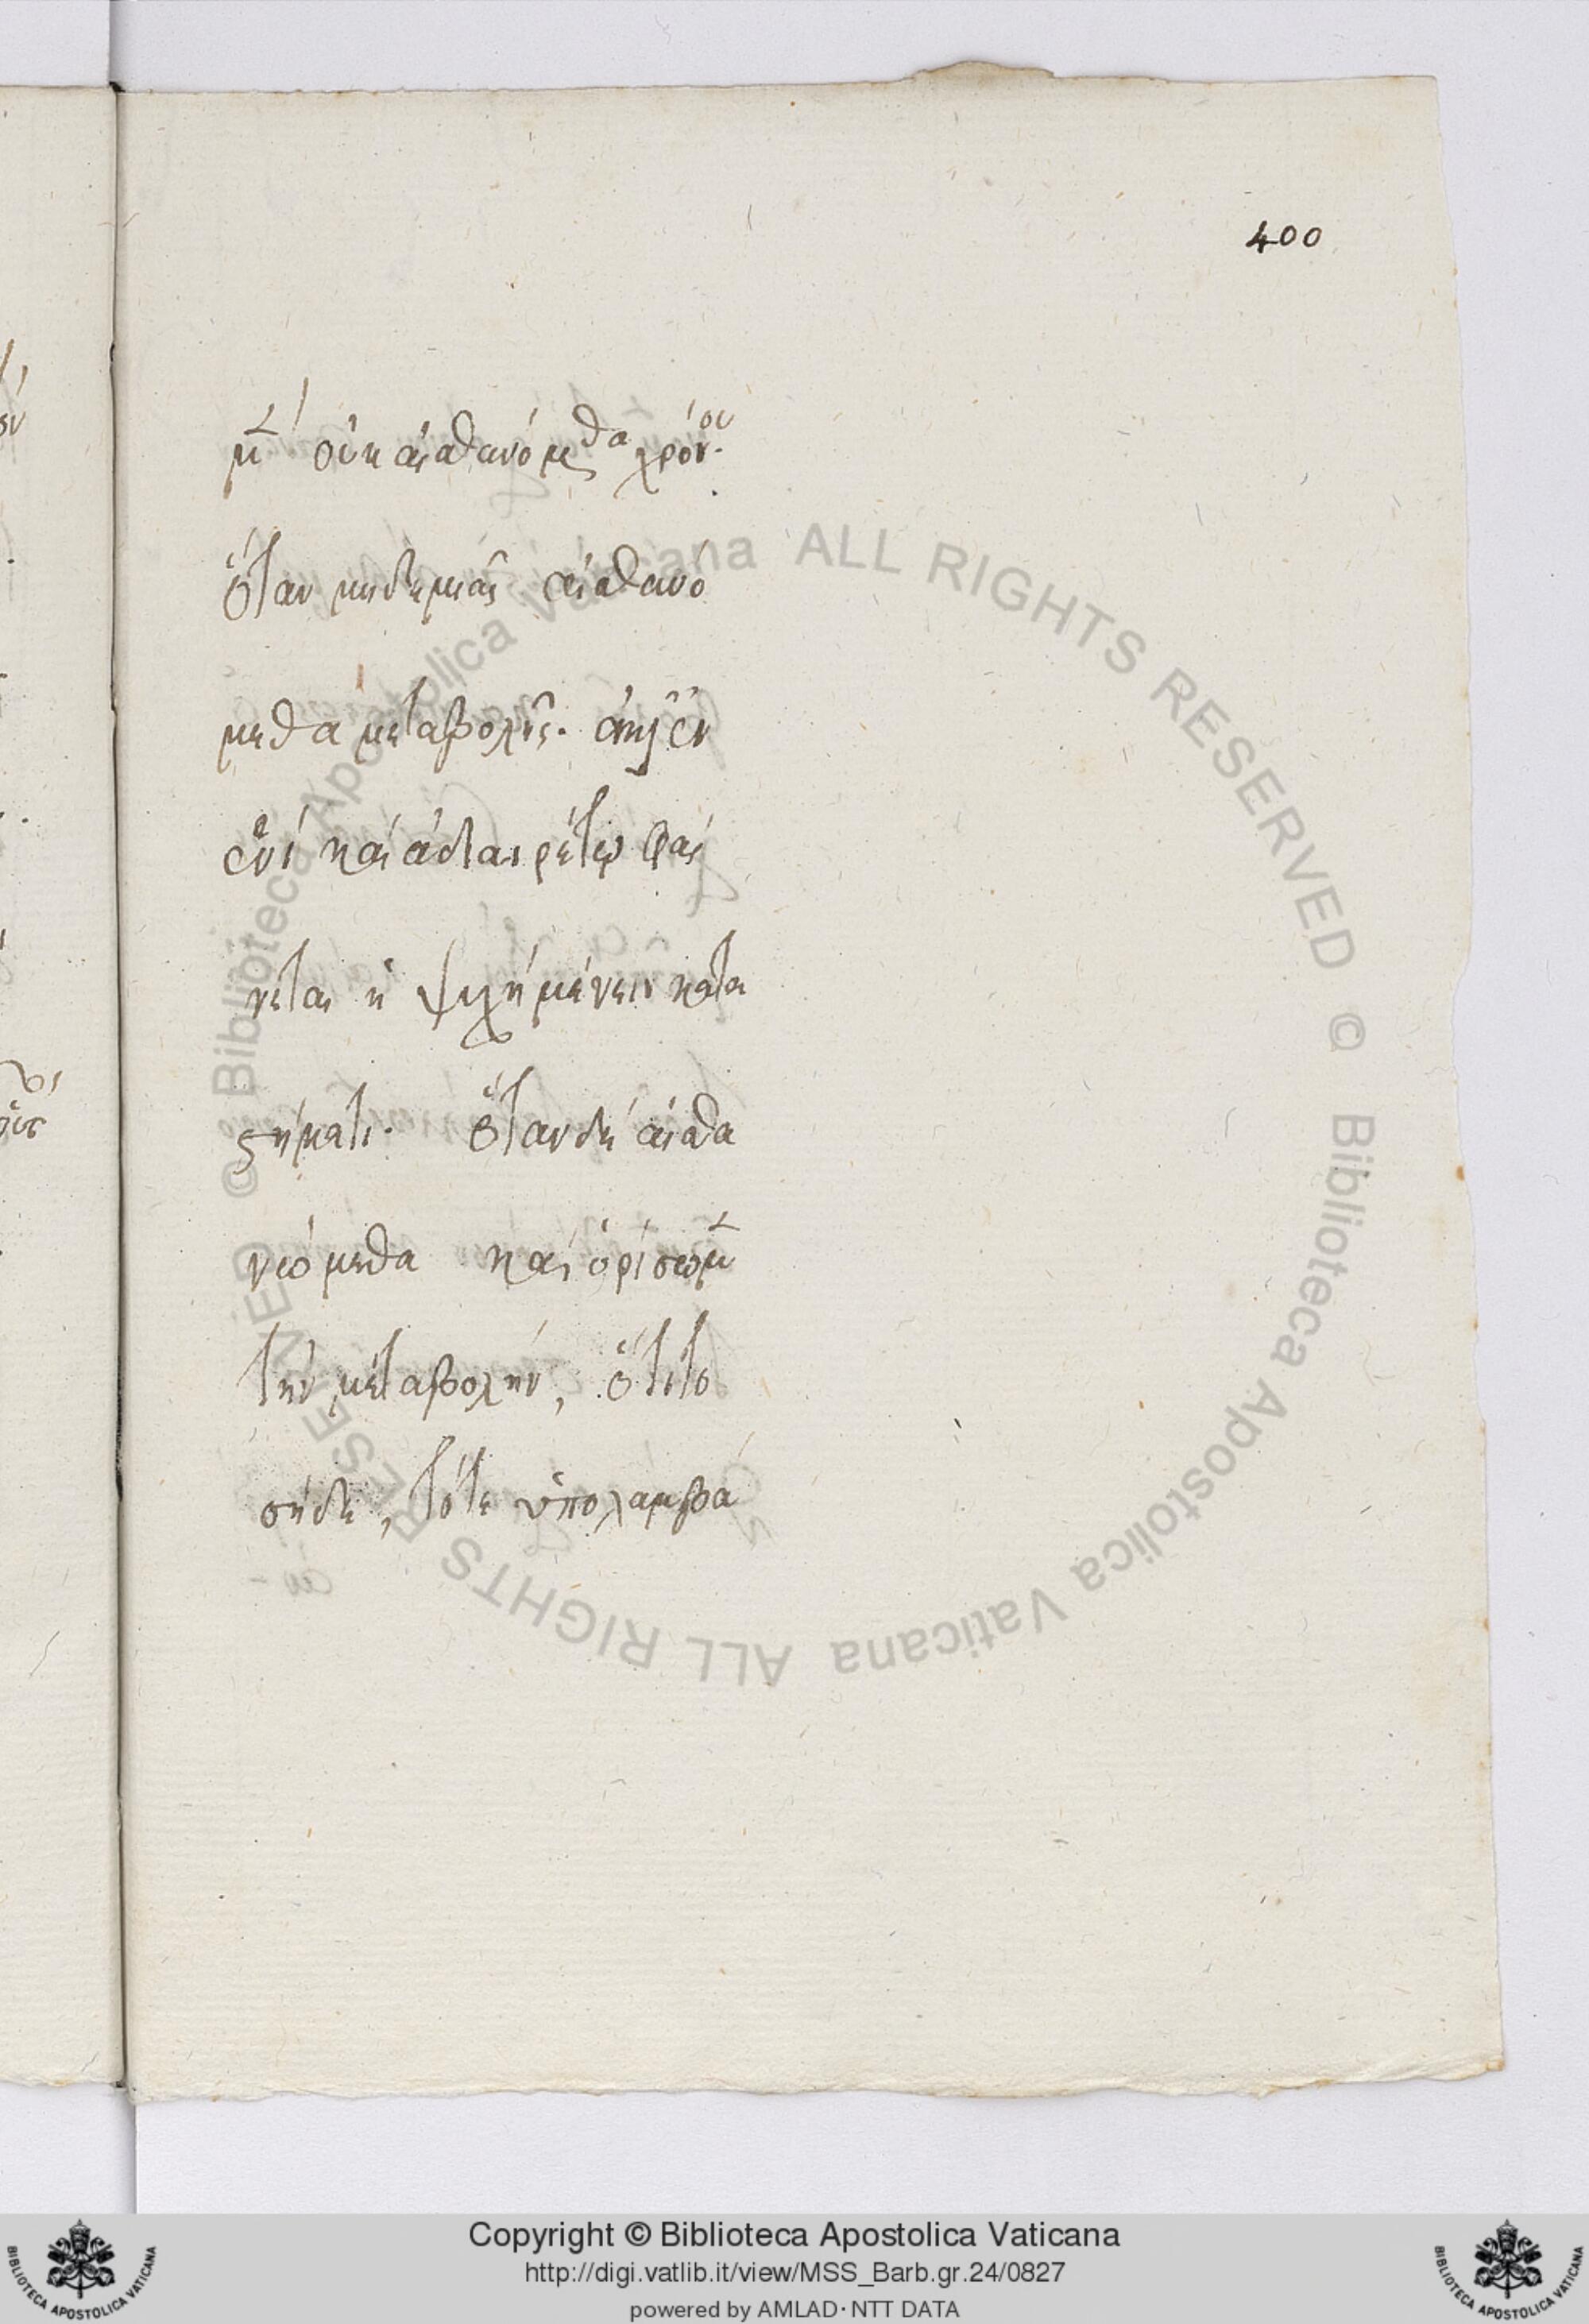 400
μ̅ οὐκ αἰσθανόμεθα χρόνου.
ὅταν μηδεμιᾶς αἰσθανό
μεθα μεταβολῆς. ἀλλ' ἐν
ἑνὶ καὶ ἀδιαιρέτῳ φαί
νεται ἡ ψυχὴ μένειν κατα
στήματι. ὅταν δὲ αἰσθα
νώμεθα καὶ ὁρίσωμ̅
τὴν μεταβολὴν, ὅτι το
σήδε, τότε ὑπολαμβά
© Biblioteca Apostolica Vaticana ALL RIGHTS RESERVED © Biblioteca Apostolica Vaticana ALL RIGHTS RESERVED
Copyright © Biblioteca Apostolica Vaticana
http://digi.vatlib.it/view/MSS_Barb.gr.24/0827
powered by AMLAD · NTT DATA
BIBLIOTECA APOSTOLICA VATICANA
BIBLIOTECA APOSTOLICA VATICANA